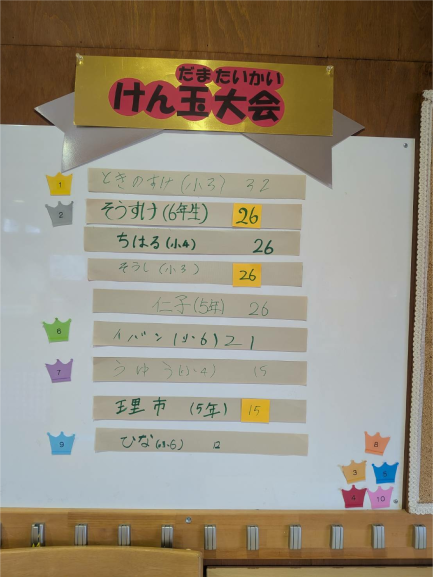 だまたいかい
けん玉大会
1 ときのすけ(小3) 32
2 そうすけ(6年生) 26
ちはる(小4) 26
そうし(小3) 26
仁子(5年) 26
6 イバン(小6) 21
7 うゆう(小4) 15
王里市 (5年) 15
9 ひな(小6)
8
3 5
4 10